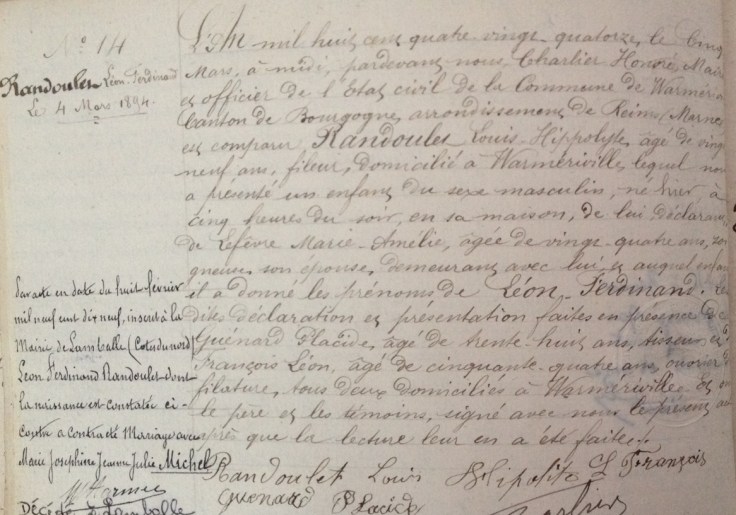 N° 14
Randoulet Léon Ferdinand
Le 4 Mars 1894.
L'An mil huit cent quatre vingt quatorze, le Cinq
Mars, à midi, pardevant nous, Charlier Honoré, Maire
et officier de l'Etat civil de la Commune de Warmeri
Canton de Bourgogne, arrondissement de Reims (Marne
est comparu Randoulet Louis Hippolyte, âgé de vingt
neuf ans, fileur, domicilié à Warmeriville, lequel nous
a présenté un enfant du sexe masculin, né hier, à
cinq heures du soir, en sa maison, de lui déclarant
de Lefèvre Marie-Amélie, âgée de vingt-quatre ans, soi
gneuse, son épouse, demeurant avec lui, et auquel enfant
il a donné les prénoms de Léon, Ferdinand. Les
dites déclaration et présentation faites en présence de
Guénard Placide, âgé de trente-huit ans, tisseur et
François Léon, âgé de cinquante-quatre ans, ouvrier de
filature, tous deux domiciliés à Warmeriville. Et ont
le père et les témoins, signé avec nous le présent acte
après que la lecture leur en a été faite.
Randoulet Louis Hipolite L François
Guenard Placide
Par acte en date du huit février
mil neuf cent dix neuf, inscrit à la
Mairie de Lamballe (Cotes du nord)
Léon Ferdinand Randoulet dont
la naissance est constatée ci-
contre a contracté Mariage avec
Marie Josephine Jeanne Julie Michel
Décédé à Lamballe